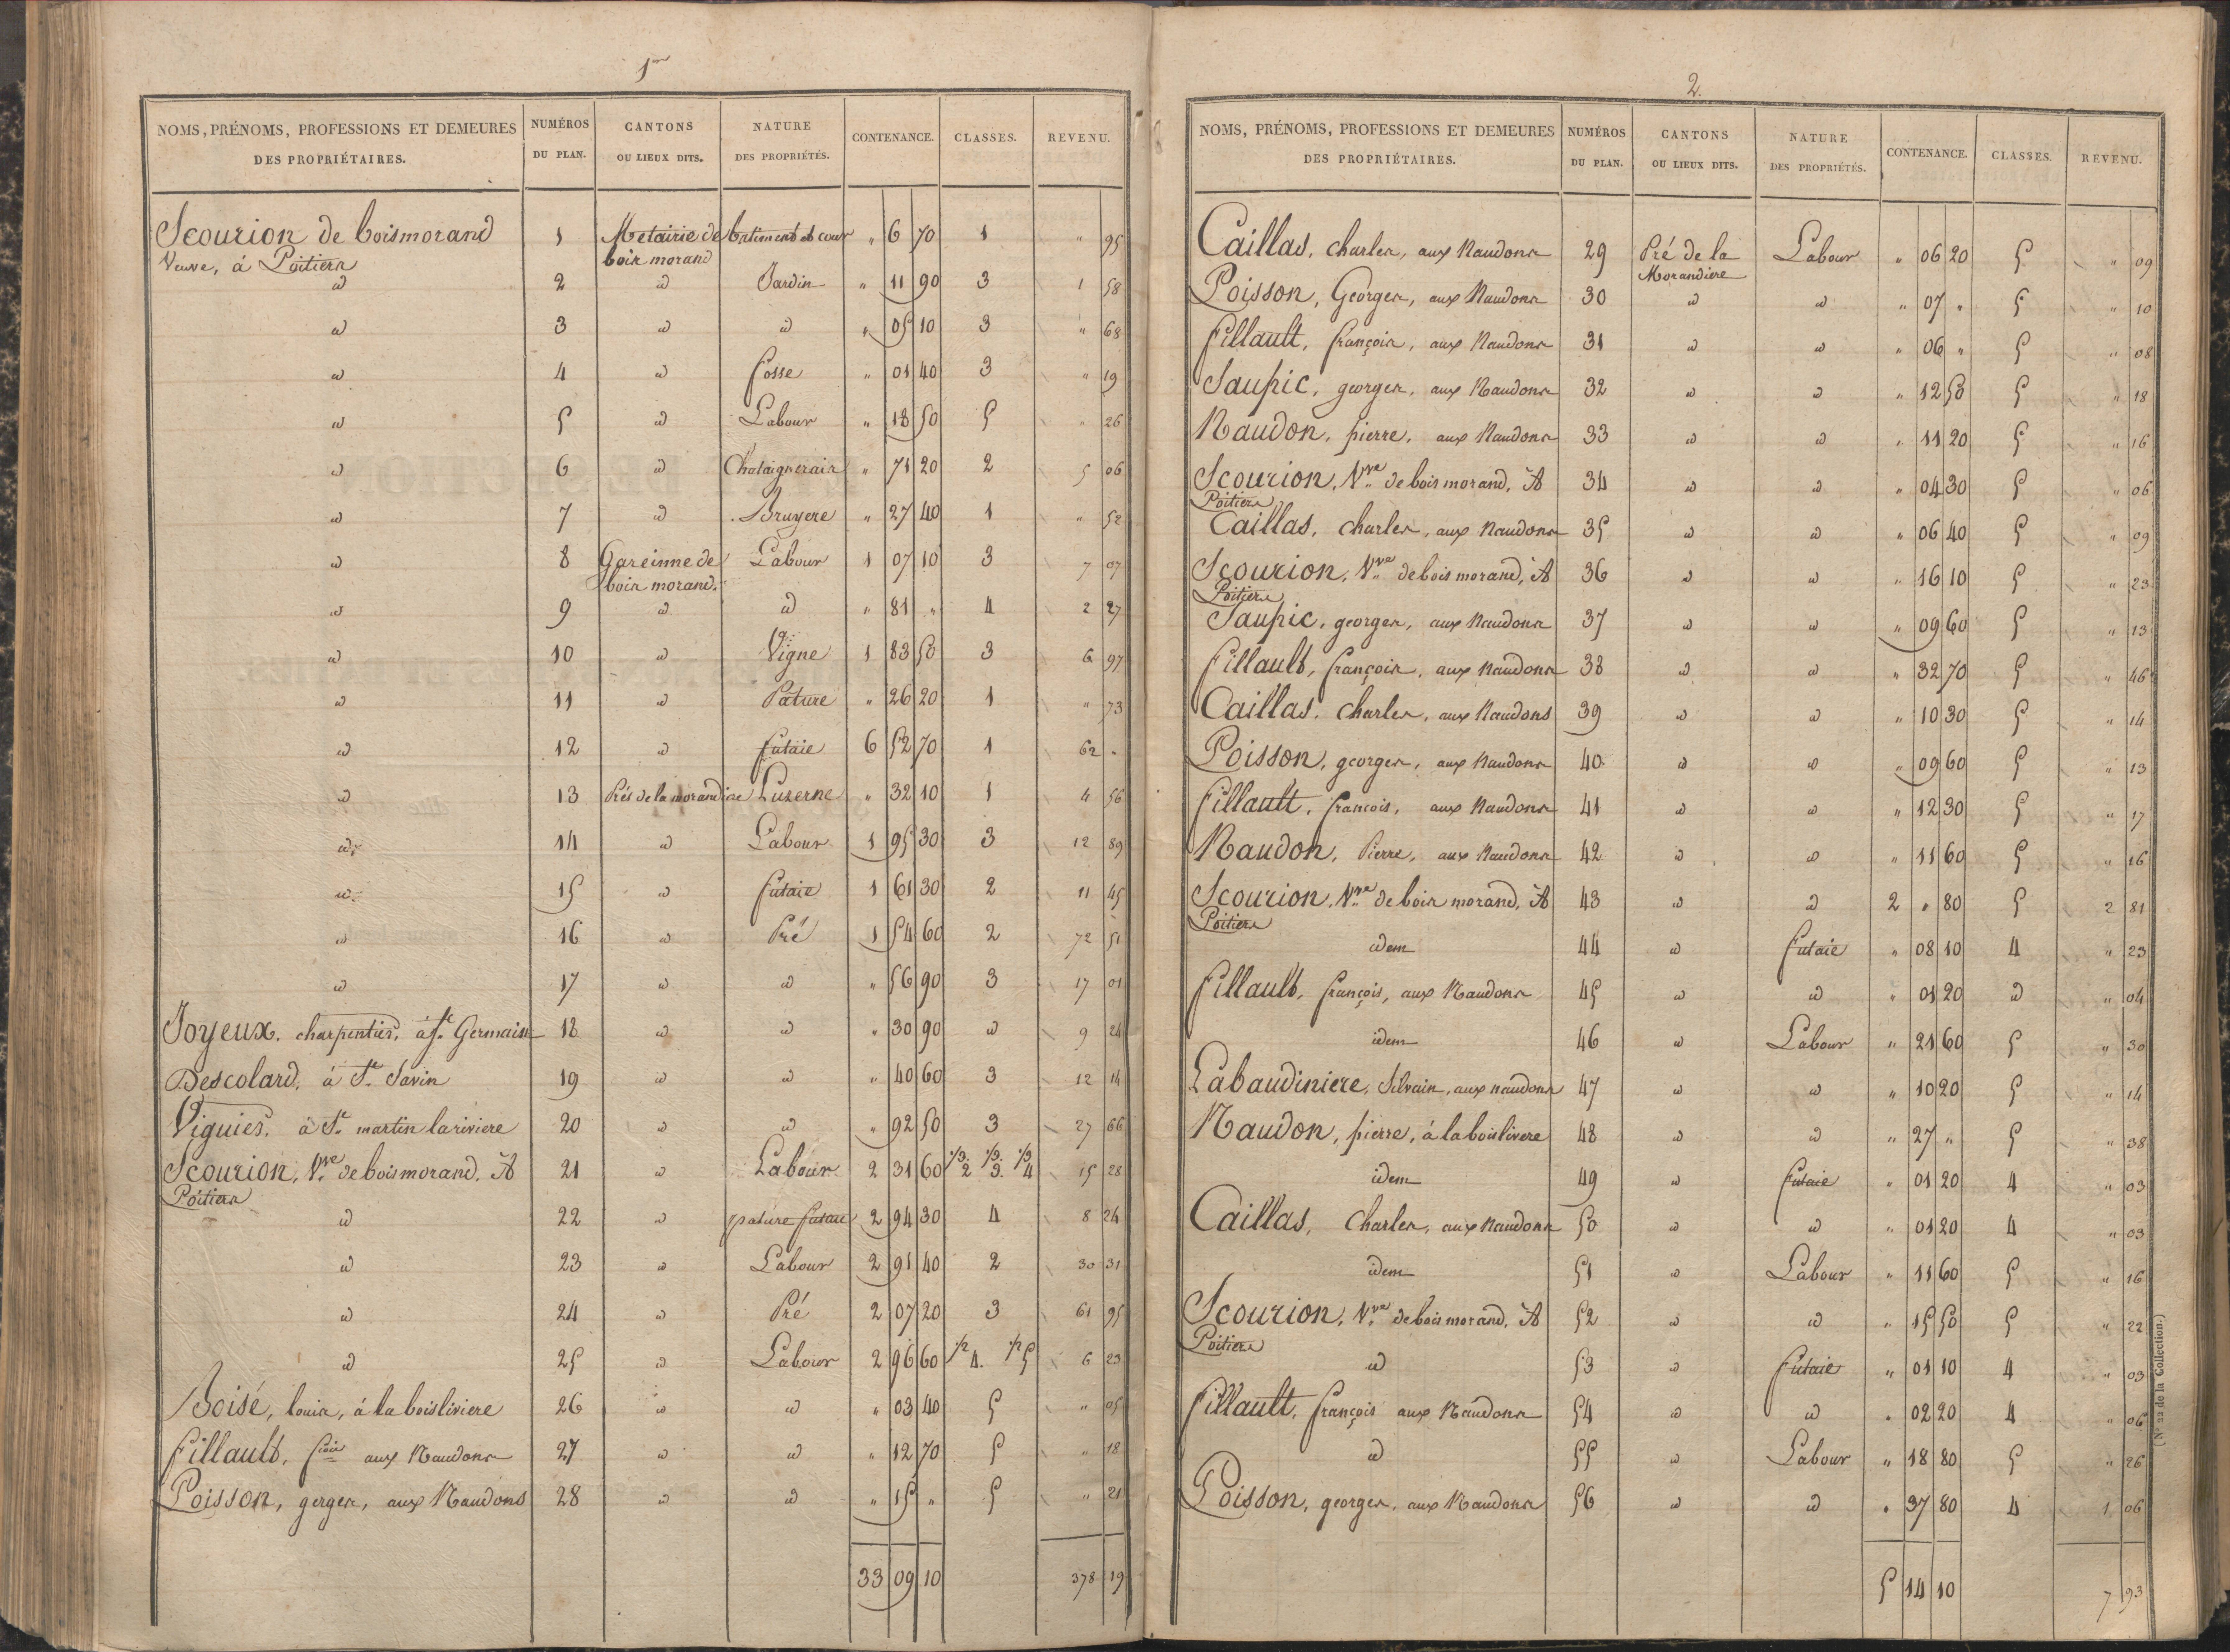 1er
NOMS, PRÉNOMS, PROFESSIONS ET DEMEURES DES PROPRIÉTAIRES. NUMÉROS DU PLAN. CANTONS OU LIEUX DITS. NATURE DES PROPRIÉTÉS. CONTENANCE. CLASSES. REVENU.
Scourion de boismorand 1 Metairie de batiment et cour " 6 70 1 " 95
Veuve, á Poitiers boismorand
id 2 id Jardin " 11 90 3 1 58
id 3 id id " 05 10 3 " 68
id 4 id fosse " 01 40 3 " 19
id 5 id Labour " 18 50 5 " 26
id 6 id Chataignerais " 71 20 2 5 06
id 7 id Bruyere " 27 40 1 " 52
id 8 Gareinne de Labour 1 07 10 3 7 07
bois morand.
id 9 id id " 81 " 4 2 27
id 10 id Vigne 1 83 50 3 6 97
id 11 id Pature " 26 20 1 " 73
id 12 id futaie 6 52 70 1 62 "
id 13 Prés de la morandiae Luzerne " 32 10 1 4 56
id 14 id Labour 1 95 30 3 12 89
id 15 id futaie 1 61 30 2 11 45
id 16 id Pré 1 54 60 2 72 51
id 17 id id " 56 90 3 17 01
Joyeux. charpentier, à St. Germain 18 id id " 30 90 id 9 24
Descolard, á St. Savin 19 id id " 40 60 3 12 14
Viguier. á St. martin lariviere 20 id id " 92 50 3 27 66
Scourion, Vve de boismorand, A 21 id Labour 2 31 60 1/3. 2 1/3. 3. 1/3 4 15 28
Poitiers
id 22 id pature futaie 2 94 30 4 8 24
id 23 id Labour 2 91 40 2 30 31
id 24 id Pré 2 07 20 3 61 95
id 25 id Labour 2 96 60 1/2 4. 1/2 5 6 23
Boisé, louis, á la boisliviere 26 id id " 03 40 5 " 05
fillault, fcois aux Naudons 27 id id " 12 70 5 " 18
Poisson, gerges, aux Naudons 28 id id " 15 " 5 " 21
33 09 10 378 19
2.
NOMS, PRÉNOMS, PROFESSIONS ET DEMEURES DES PROPRIÉTAIRES. NUMÉROS DU PLAN. CANTONS OU LIEUX DITS. NATURE DES PROPRIÉTÉS. CONTENANCE. CLASSES. REVENU.
Caillas, charles, aux Naudons 29 Pré de la Labour " 06 20 5 " 09
Morandiere
Poisson, Georges, aux Naudons 30 id id " 07 " 5 " 10
fillault, françois, aux Naudons 31 id id " 06 " 5 " 08
Saupic, georges, aux Naudons 32 id id " 12 50 5 " 18
Naudon, pierre, aux Naudons 33 id id " 11 20 5 " 16
Scourion, Vve de bois morand, A 34 id id " 04 30 5 " 06
Poitiers
Caillas, charles, aux Naudons 35 id id " 06 40 5 " 09
Scourion, Vve de bois morand, A 36 id id " 16 10 5 " 23
Poitiers
Saupic, georges, aux Naudons 37 id id " 09 60 5 " 13
fillault, françois, aux Naudons 38 id id " 32 70 5 " 46
Caillas, charles, aux Naudons 39 id id " 10 30 5 " 14
Poisson, georges, aux Naudons 40 id id " 09 60 5 " 13
fillault, francois, aux Naudons 41 id id " 12 30 5 " 17
Naudon, Pierre, aux Naudons 42 id id " 11 60 5 " 16
Scourion, Vve de bois morand, A 43 id id 2 " 80 5 2 81
Poitiers
idem 44 id futaie " 08 10 4 " 23
fillault, françois, aux Naudons 45 id id " 01 20 id " 04
idem 46 id Labour " 21 60 5 " 30
Labaudiniere, Silvain, aux naudons 47 id id " 10 20 5 " 14
Naudon, pierre, á la boislivere 48 id id " 27 " 5 " 38
idem 49 id futaie " 01 20 4 " 03
Caillas, Charles, aux Naudons 50 id id " 01 20 4 " 03
idem 51 id Labour " 11 60 5 " 16
Scourion, Vve de bois morand, A 52 id id " 15 50 5 " 22
Poitiers
id 53 id futaie " 01 10 4 " 03
fillault, françois aux Naudons 54 id id " 02 20 4 " 06
id 55 id Labour " 18 80 5 " 26
Poisson, georges, aux Naudons 56 id id " 37 80 4 1 06
5 14 10 7 93
(N° 22 de la Collection.)